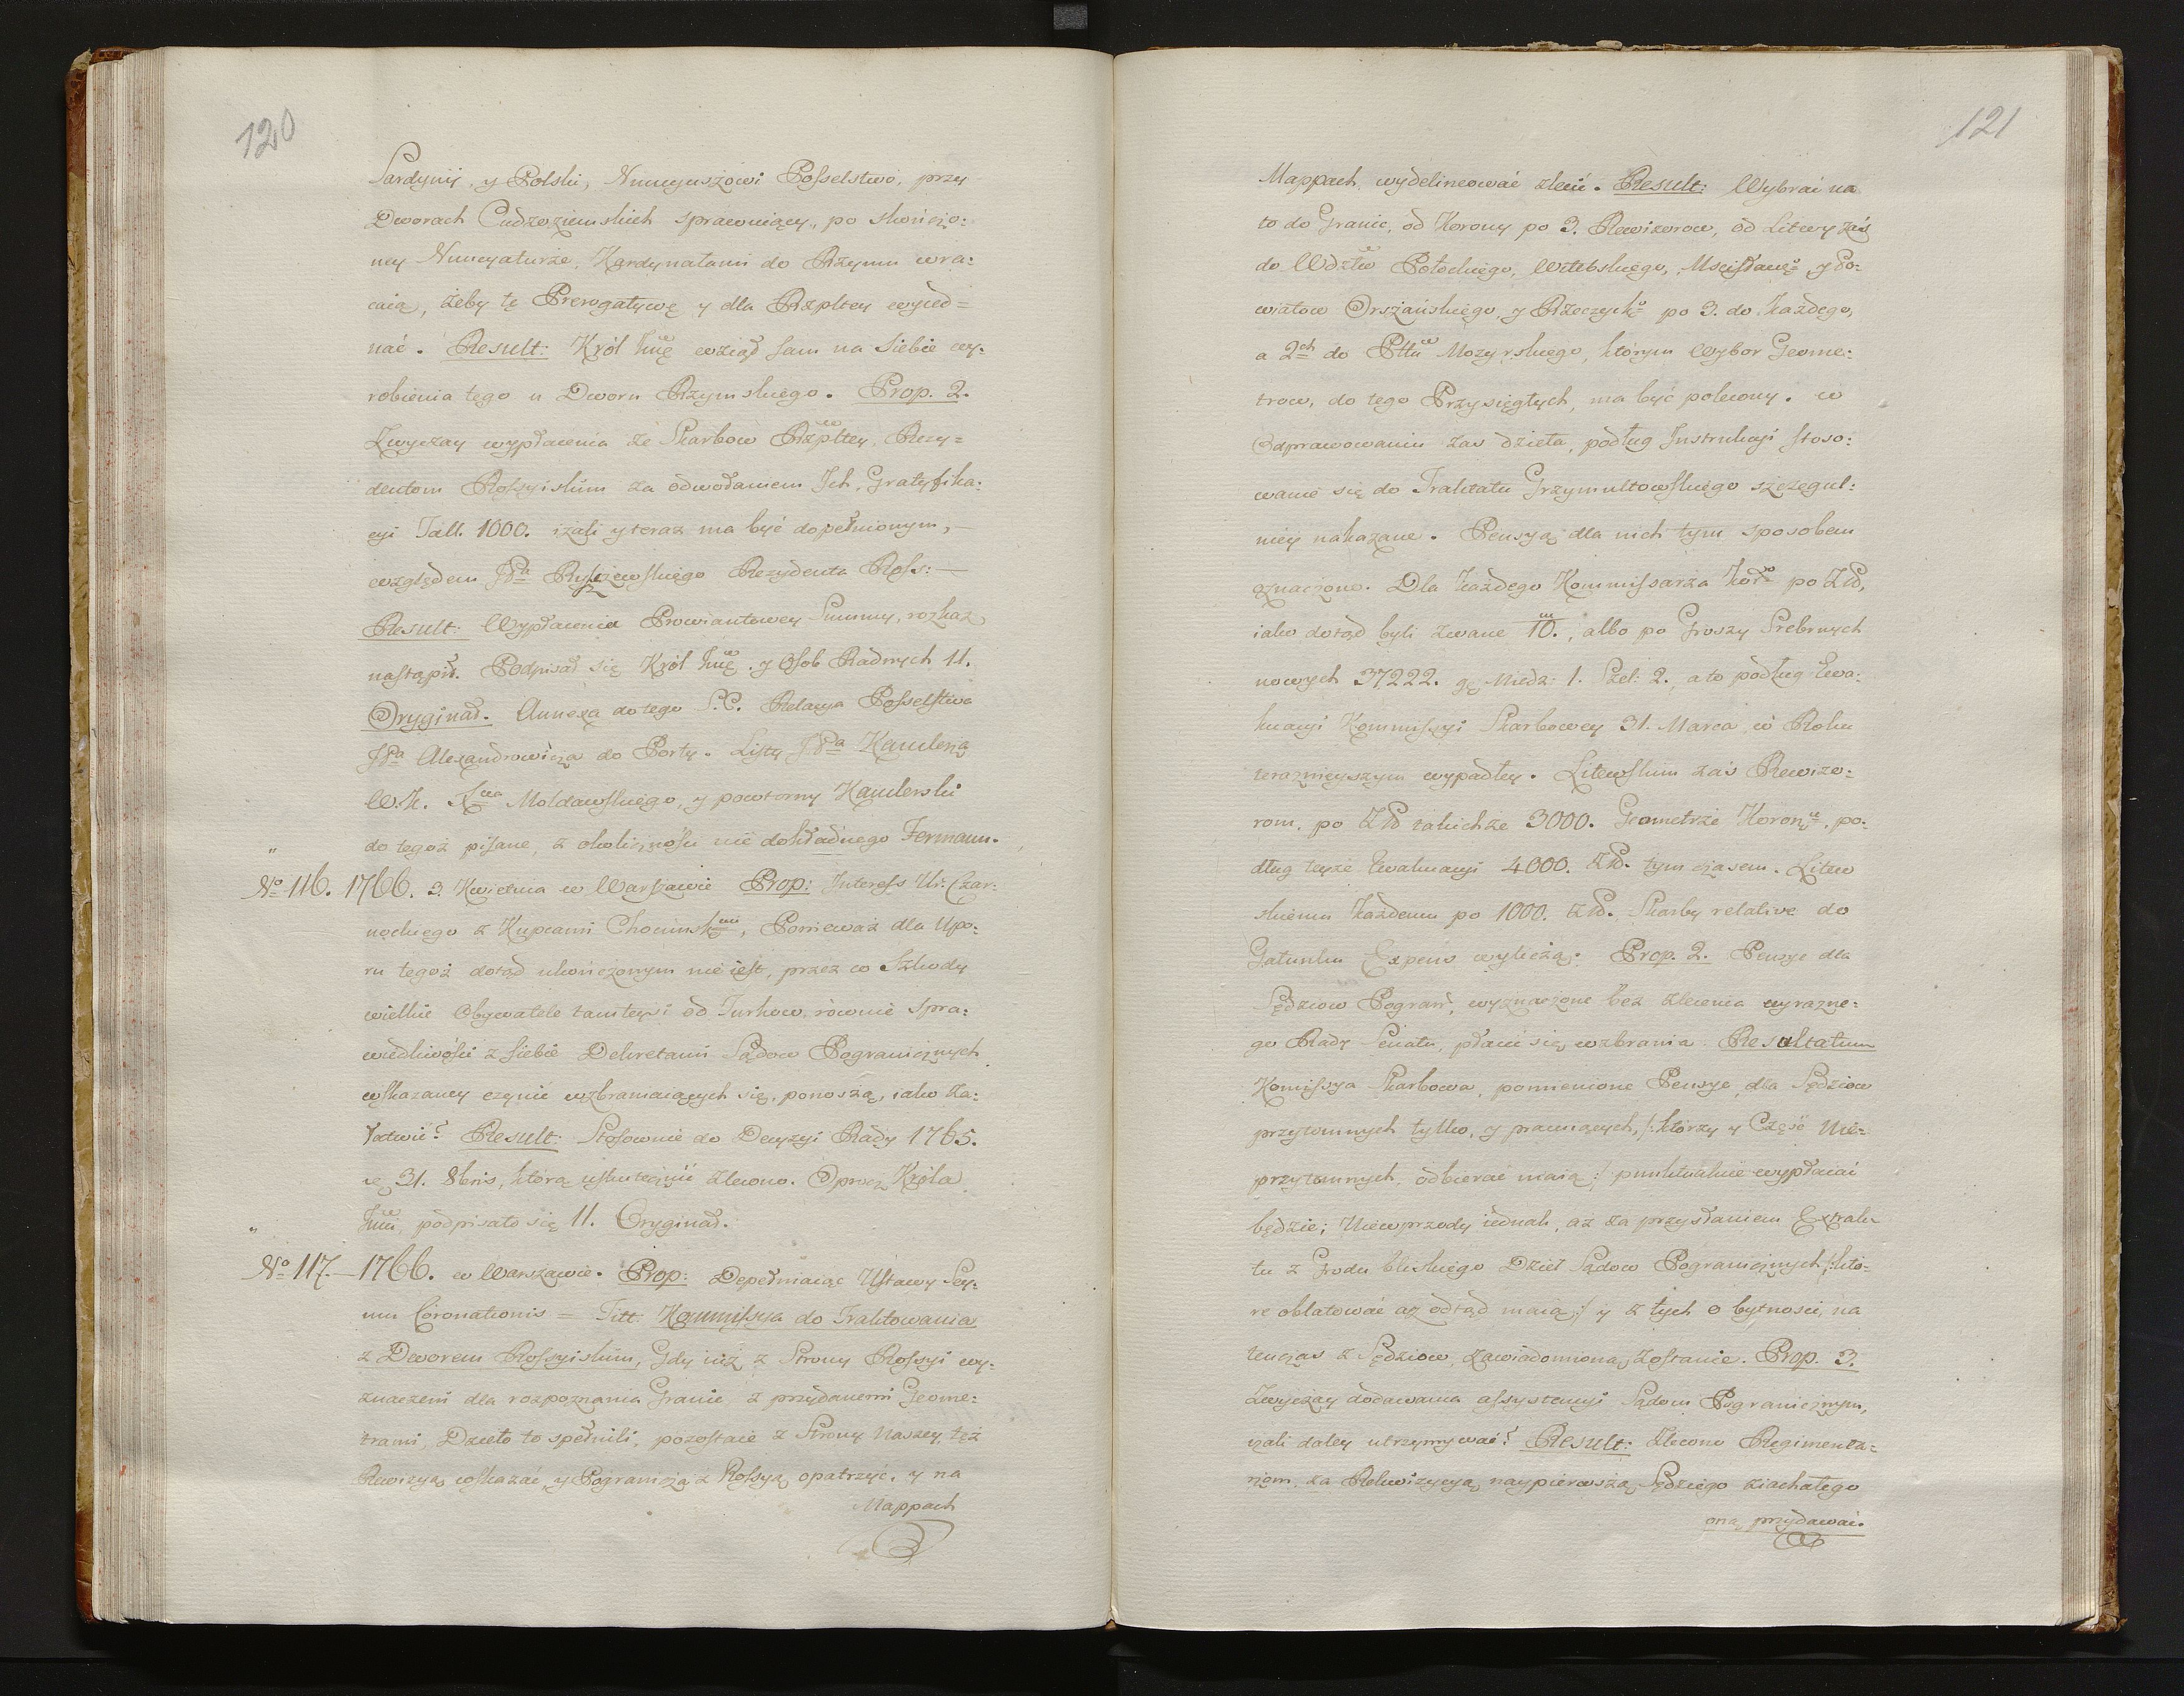 120
Sardynij, y Polski, Nuncyuszowi Posselstwo, przy
Dworach Cudzoziemskich sprawuiący, po skończo:
ney Nuncyaturze, Kardynałami do Rzymu wra:
caią, żeby tę Prerogatywę y dla Rzpltey wyied=
nać. Result: Król Jmć wziąd sam na siebie wy:
robienia tego u Dworu Rzymskiego. Prop. 2.
Zwyczay wypłacenia ze Skarbow Rzpltey, Rezy=
dentom Rossyiskim za odwołaniem Jch, Gratyfika:
cyi Tall. 1000. iżali y teraz ma być dopełnionym,
względem JPa Rzyszczewskiego Rezydenta Ross:
Result: Wypłacenia Prowiantowey Summy, rozkaz
nastąpił. Podpisał się Król Jmć y Osob Radnych 11.
Oryginał. Annexa do tego S.C. Relacya Posselstwa
JPa Alexandrowicza do Porty. Listy JPa Kanclerza
W.K. Xcia Mołdawskiego, y powtorny Kanclerski
do tegoż pisane, z okoliczności nie dokładnego Fermanu.
No 116. 1766. 3. Kwietnia w Warszawie Prop: Interess Ur. Czar:
nockiego z Kupcami Chocimskiemi, Ponieważ dla Upo:
ru tegoż dotąd ukończonym nie iest, przez co Szkody
wielkie Obywatele tamteysi od Turkow, rownie spra:
wiedliwości z siebie Dekretami Sądow Pogranicznych
wskazaney czynić wzbraniaiących się, ponoszą, iako za:
łatwić? Result: Stosownie do Decyzyi Rady 1765.
31. 8bris, którą uskutecznić zlecono. Oprocz Króla
Jmci podpisało się 11. Oryginał.
No 117. 1766. w Warszawie. Prop: Dopełniaiąc Ustawy Sey:
mu Coronationis = Titt: Kommissya do Traktowania
z Dworem Rossyiskim, Gdy iuż z Strony Rossyi wy:
znaczeni dla rozpoznania Granic z przydanemi Geome:
trami, Dzieło to spełnili, pozostaie z Strony Naszey też
Rewizyą wskazać, y Pogranicza z Rossyą opatrzyć, y na
Mappach
121
Mappach wydelineować zlecić. Result: Wybrać na
to do Granic, od Korony po 3. Rewizorow, od Litwy zaś
do Wdztw Połockiego, Witebskiego, Mścisławgo y Po:
wiatow Orszańskiego, y Rzeczyckgo po 3. do każdego,
a 2ch do Pttu Mozyrskiego, którym Wybor Geome:
trow, do tego Przysięgłych, ma być polecony. w
Odprawowaniu zas dzieła, podług Instrukcyi stoso:
wanie się do Traktatu Grzymułtowskiego szczegul:
niey nakazane. Pensyą dla nich tym sposobem
oznaczono. Dla każdego Kommissarza Korgo po Zło,
iako dotąd byli zwane 10., albo po Groszy Srebrnych
nowych 37222. gr. Miedz: 1. Szel: 2., a to podług Ewa:
luacyi Kommissyi Skarbowey 31. Marca w Roku
teraznieyszym wypadłey. Litewskim zaś Rewizo:
rom, po Zło takichże 3000. Geometrze Koronne, po:
dług teyże Ewaluacyi 4000. Zło. tym czasem. Litew
skiemu każdemu po 1000. Zło. Skarby relative do
Gatunku Expens wyliczą. Prop. 2. Pensye dla
Sędziow Pogran: wyznaczone bez zlecenia wyrazne:
go Rady Senatu, płacić się wzbrania. Resultatum
Komissya Skarbowa, pomienione Pensye, dla Sędziow
przytomnych tylko, y pracuiących, /: którzy y Część Nie:
przytomnych, odbierać maią :/ punktualnie wypłacać
będzie; Niewprzody iednak, aż za przysłaniem Extrak
tu z Grodu bliskiego Dzieł Sądow Pogranicznych /: któ:
re oblatować aż odtąd maią :/ y z tych o bytnosci, na
tenczas z Sędziow, zawiadomioną zostanie. Prop. 3.
Zwyczay dodawania assystencyi Sądom Pogranicznym,
iżali daley utrzymywać? Result: Zlecono Regimenta:
rzom, za Rekwizycyą naypierwszą Sędziego ziachałego
oną przydawać.